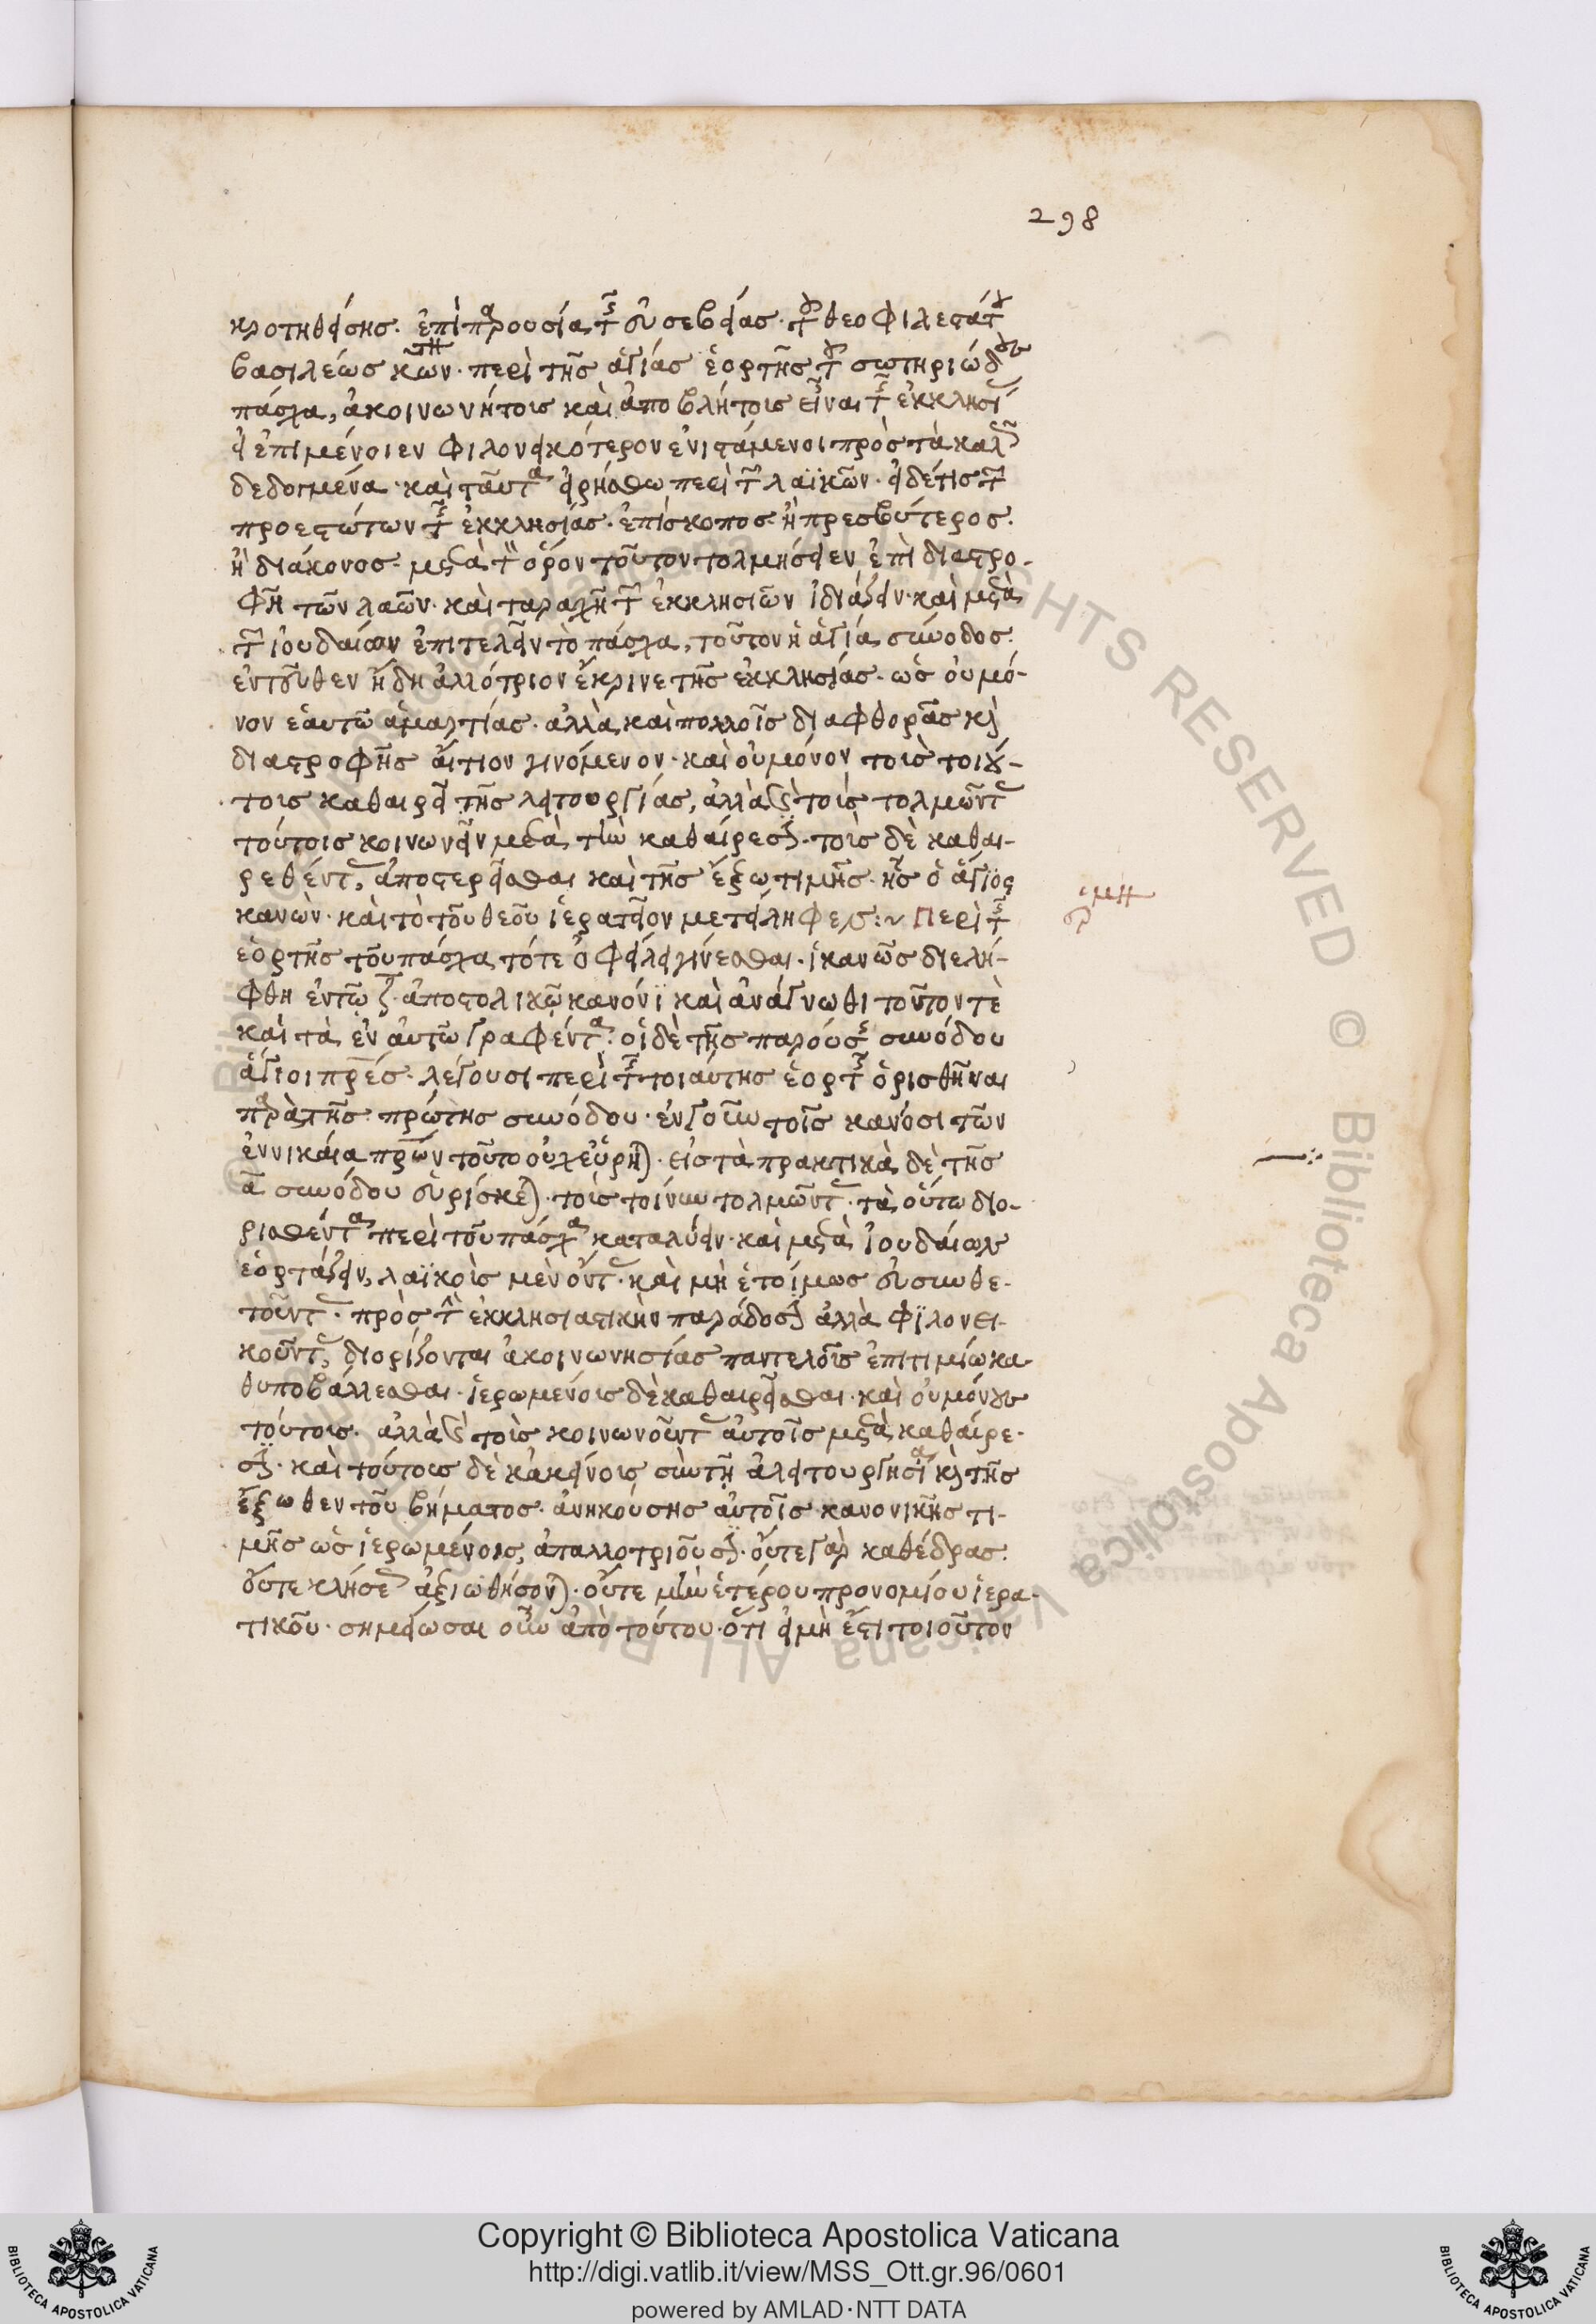 298
κροτηθείσης. ἐπὶ παρουσία τῆς εὐσεβείας. τοῦ θεοφιλεστάτου
βασιλέως κων. περὶ τῆς ἁγίας ἑορτῆς τοῦ σωτηριώδους
πάσχα, ἀκοινωνήτους καὶ ἀποβλήτους εἶναι τῆς ἐκκλησί
εἰ ἐπιμένοιεν φιλονεικότερον ἐνιστάμενοι πρὸς τὰ καλῶς
δεδογμένα. καὶ ταῦτα εἰρήσθω περὶ τῶν λαϊκῶν. εἰ δέ τις τῶν
προεστώτων τῆς ἐκκλησίας. ἐπίσκοπος. ἢ πρεσβύτερος.
ἢ διάκονος. μετὰ τὸν ὅρον τοῦτον τολμήσειεν ἐπὶ διαστρο-
φῇ τῶν λαῶν. καὶ ταραχῇ τῶν ἐκκλησιῶν ἰδιάζειν. καὶ μετὰ
τῶν ἰουδαίων ἐπιτελεῖν τὸ πάσχα, τοῦτον ἡ ἁγία σύνοδος.
ἐντεῦθεν ἤδη ἀλλότριον ἔκρινε τῆς ἐκκλησίας. ὡς οὐ μό-
νον ἑαυτῶ ἁμαρτίας. ἀλλὰ καὶ πολλοῖς διαφθορᾶς καὶ
διαστροφῆς αἴτιον γινόμενον. καὶ οὐ μόνον τοὺς τοιού-
τους καθαιρεῖ τῆς λειτουργίας, ἀλλὰ καὶ τοὺς τολμῶντας
τούτοις κοινωνεῖν μετὰ τὴν καθαίρεσιν. τοὺς δὲ καθαι-
ρεθέντας, ἀποστερεῖσθαι καὶ τῆς ἔξω τιμῆς. ἧς ὁ ἅγιος
κανὼν. καὶ τὸ τοῦ θεοῦ ἱερατεῖον μετείληφεν :~ Περὶ τῆς
ἑορτῆς τοῦ πάσχα τότε ὀφείλει γίνεσθαι. ἱκανῶς διελή-
φθη ἐν τῷ ζ. ἀποστολικῷ κανόνι καὶ ἀνάγνωθι τοῦτον τὲ
καὶ τὰ ἐν αὐτῶ γραφέντα. οἱ δὲ τῆς παρούσης συνόδου
ἅγιοι πρες. λέγουσι περὶ τῆς τοιαύτης ἑορτῆς ὁρισθῆναι
παρὰ τῆς πρώτης συνόδου. ἐν γοῦν τοῖς κανόσι τῶν
ἐν νικαία πρων τοῦτο οὐχ εὕρηται. εἰς τὰ πρακτικὰ δὲ τῆς
α συνόδου εὑρίσκεται. τοὺς τοίνυν τολμῶντας. τὰ οὕτω διο-
ρισθέντα περὶ τοῦ πάσχα καταλύειν. καὶ μετὰ ἰουδαίων
ἑορτάζειν, λαϊκοὺς μὲν ὄντας. καὶ μὴ ἑτοίμως εὐσυνθε-
τοῦντας. πρὸς τὴν ἐκκλησιαστικὴν παράδοσιν ἀλλὰ φιλονει-
κοῦντας, διορίζονται ἀκοινωνησίας παντελοῦς ἐπιτιμίω κα-
θυποβάλλεσθαι. ἱερωμένους δὲ καθαιρεῖσθαι. καὶ οὐ μόνους
τούτους. ἀλλὰ καὶ τοὺς κοινωνοῦντας αὐτοῖς μετὰ καθαίρε-
σιν. καὶ τούτους δὲ κἀκείνους σὺν τῇ ἀλειτουργησία καὶ τῆς
ἔξωθεν τοῦ βήματος. ἀνηκούσης αὐτοῖς κανονικῆς τι-
μῆς ὡς ἱερωμένοις, ἀπαλλοτριοῦσιν. οὔτε γὰρ καθέδρας.
οὔτε κλήσεως ἀξιωθήσονται. οὔτε μὴν ἑτέρου προνομίου ἱερα-
τικοῦ. σημείωσαι οὖν ἀπὸ τούτου. ὅτι εἰ μὴ ἔστι τοιοῦτον
Copyright © Biblioteca Apostolica Vaticana
http://digi.vatlib.it/view/MSS_Ott.gr.96/0601
powered by AMLAD·NTT DATA
BIBLIOTECA APOSTOLICA VATICANA
BIBLIOTECA APOSTOLICA VATICANA
© Biblioteca Apostolica Vaticana ALL RIGHTS RESERVED